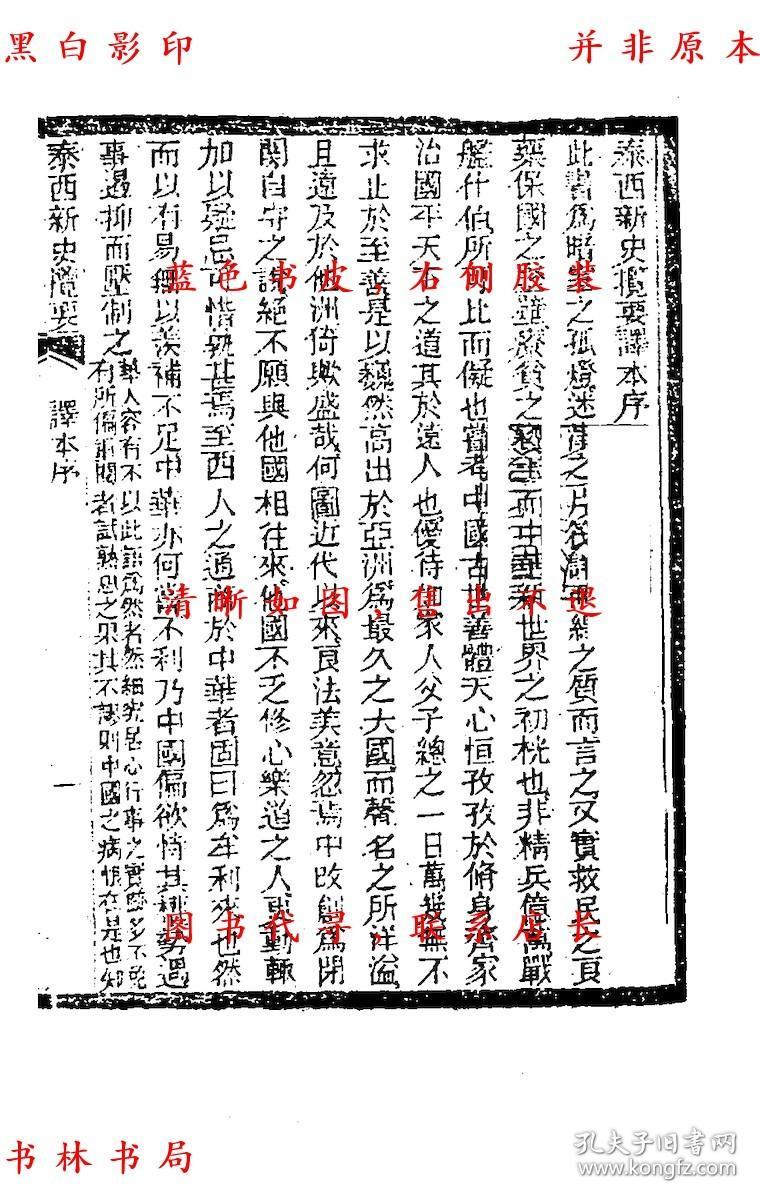 黑白影印
并非原本
泰西新史攬要譯本序
此書爲暗室之孤燈迷津之片筏詳而繹之質而言之又實救民之良
藥保國之堅壘療貧之寶玉而中華新世界之初桄也非精兵億萬戰
艦什伯所可比而儗也昔者中國古世善體天心恒孜孜於脩身齊家
治國平天下之道其於遠人也優待如家人父子總之一日萬幾無不
求止於至善是以巍然高出於亞洲爲最久之大國而聲名之所洋溢
且遠及於他洲猗歟盛哉何圖近代以來良法美意忽焉中改創爲閉
關自守之說絕不願與他國相往來他國不乏修心樂道之人更動輒
加以疑忌可惜孰甚焉至西人之通商於中華者固曰爲牟利來也然
而以有易無以羨補不足中華亦何嘗不利乃中國偏欲恃其權勢遇
事遏抑而壓制之
華人容有不以此語爲然者然細究居心行事之實跡多不免
有所偏謂閱者試熟思之果其不謬則中國之病情在是也知
泰西新史攬要
譯本序
一
蓝色书皮，右侧胶装
清晰如图，售出不退
图书代寻，联系店长
书林书局
孔夫子旧书网
www.kongfz.com